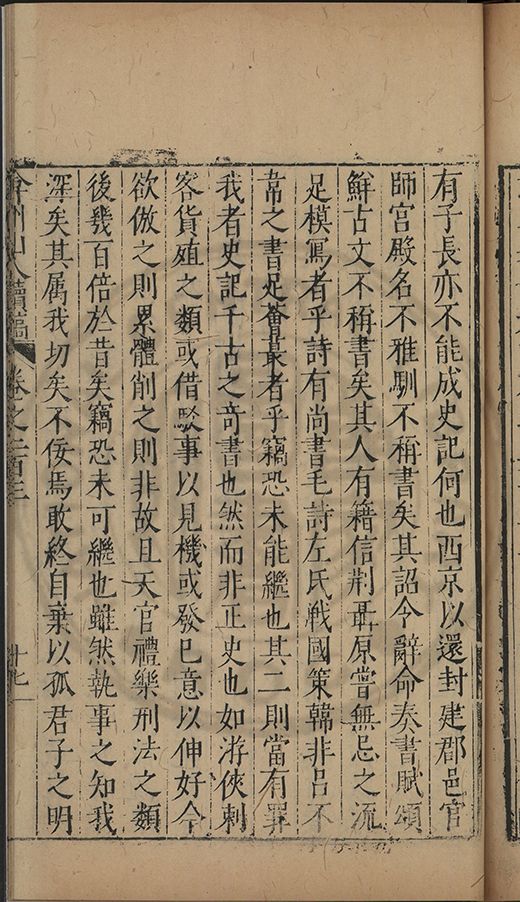 有子長亦不能成史記何也西京以還封建郡邑官
師宮殿名不雅馴不稱書矣其詔令辭命奏書賦頌
鮮古文不稱書矣其人有籍信荆聶原嘗無忌之流
足模寫者乎詩有尚書毛詩左氏戰國策韓非呂不
韋之書足薈蕞者乎竊恐未能繼也其二則當有罪
我者史記千古之奇書也然而非正史也如游俠刺
客貨殖之類或借駁事以見機或發已意以伸好今
欲倣之則累體削之則非故且天官禮樂刑法之類
後幾百倍於昔矣竊恐未可繼也雖然執事之知我
深矣其属我切矣不佞焉敢終自棄以孤君子之明
弇州山人續稿 卷之二百三 十七